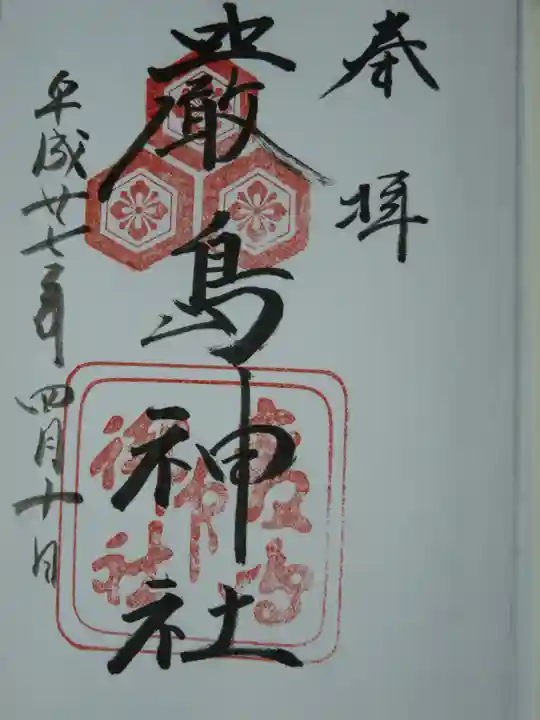 奉拝
嚴島神社
平成廿七年四月十日